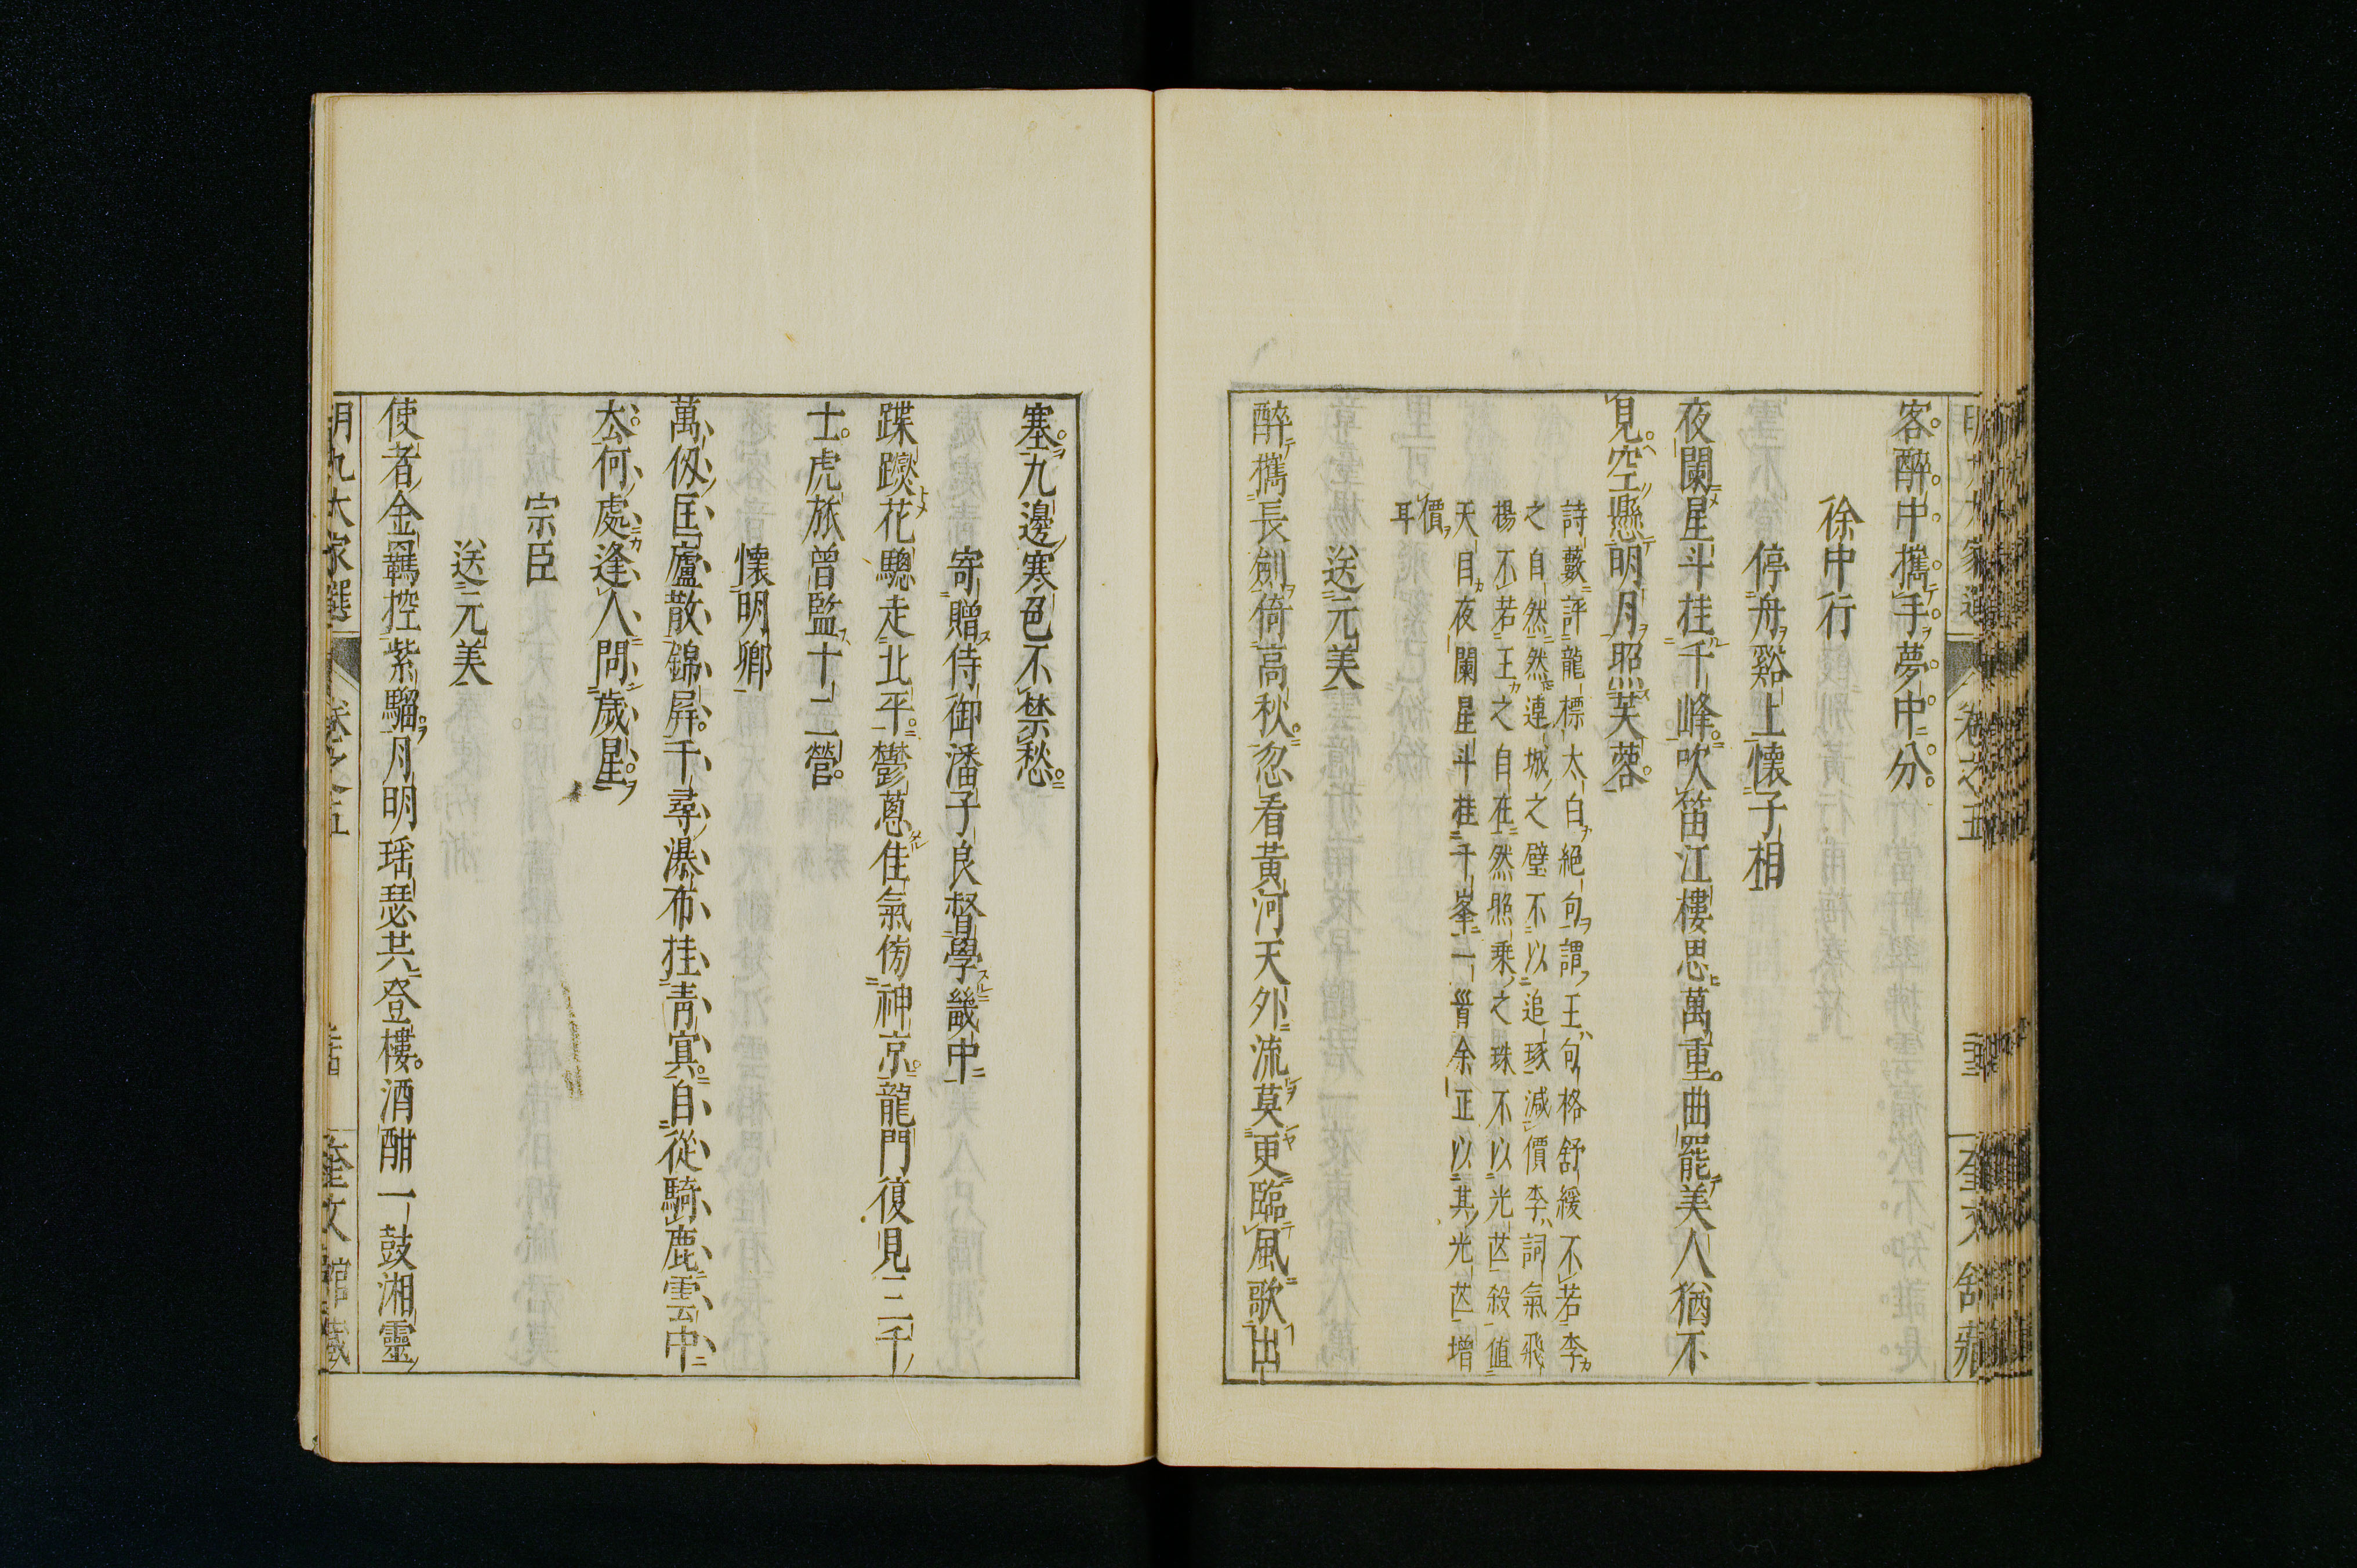 客醉中攜手夢中分
徐中行
停舟谿上懷子相
夜闌星斗桂千峰吹笛江樓思萬重曲罷美人猶不
見空懸明月照芙蓉
詩藪評龍標太白絕句謂王句格舒緩不若李
之自然然連城之璧不以追琢減價李詞氣飛
楊不若王之自在然照乘之珠不以光芒殺值
天目夜闌星斗桂千峯一首余正以其光芒增
價耳
送元美
醉攜長劍倚高秋忽看黃河天外流莫更臨風歌出
塞九邊寒色不禁愁
寄贈侍御潘子良督學畿中
蹀躞花驄走北平鬱蔥佳氣傍神京龍門復見三千
士虎旅曾監十二營
懷明卿
萬仭匡廬散錦屏千尋瀑布挂青冥自從騎鹿雲中
厺何處逢人問歲星
宗臣
送元美
使者金羈控紫騮月明瑶瑟共登樓酒酣一鼓湘靈
明九大家選 卷之五 奎文館藏